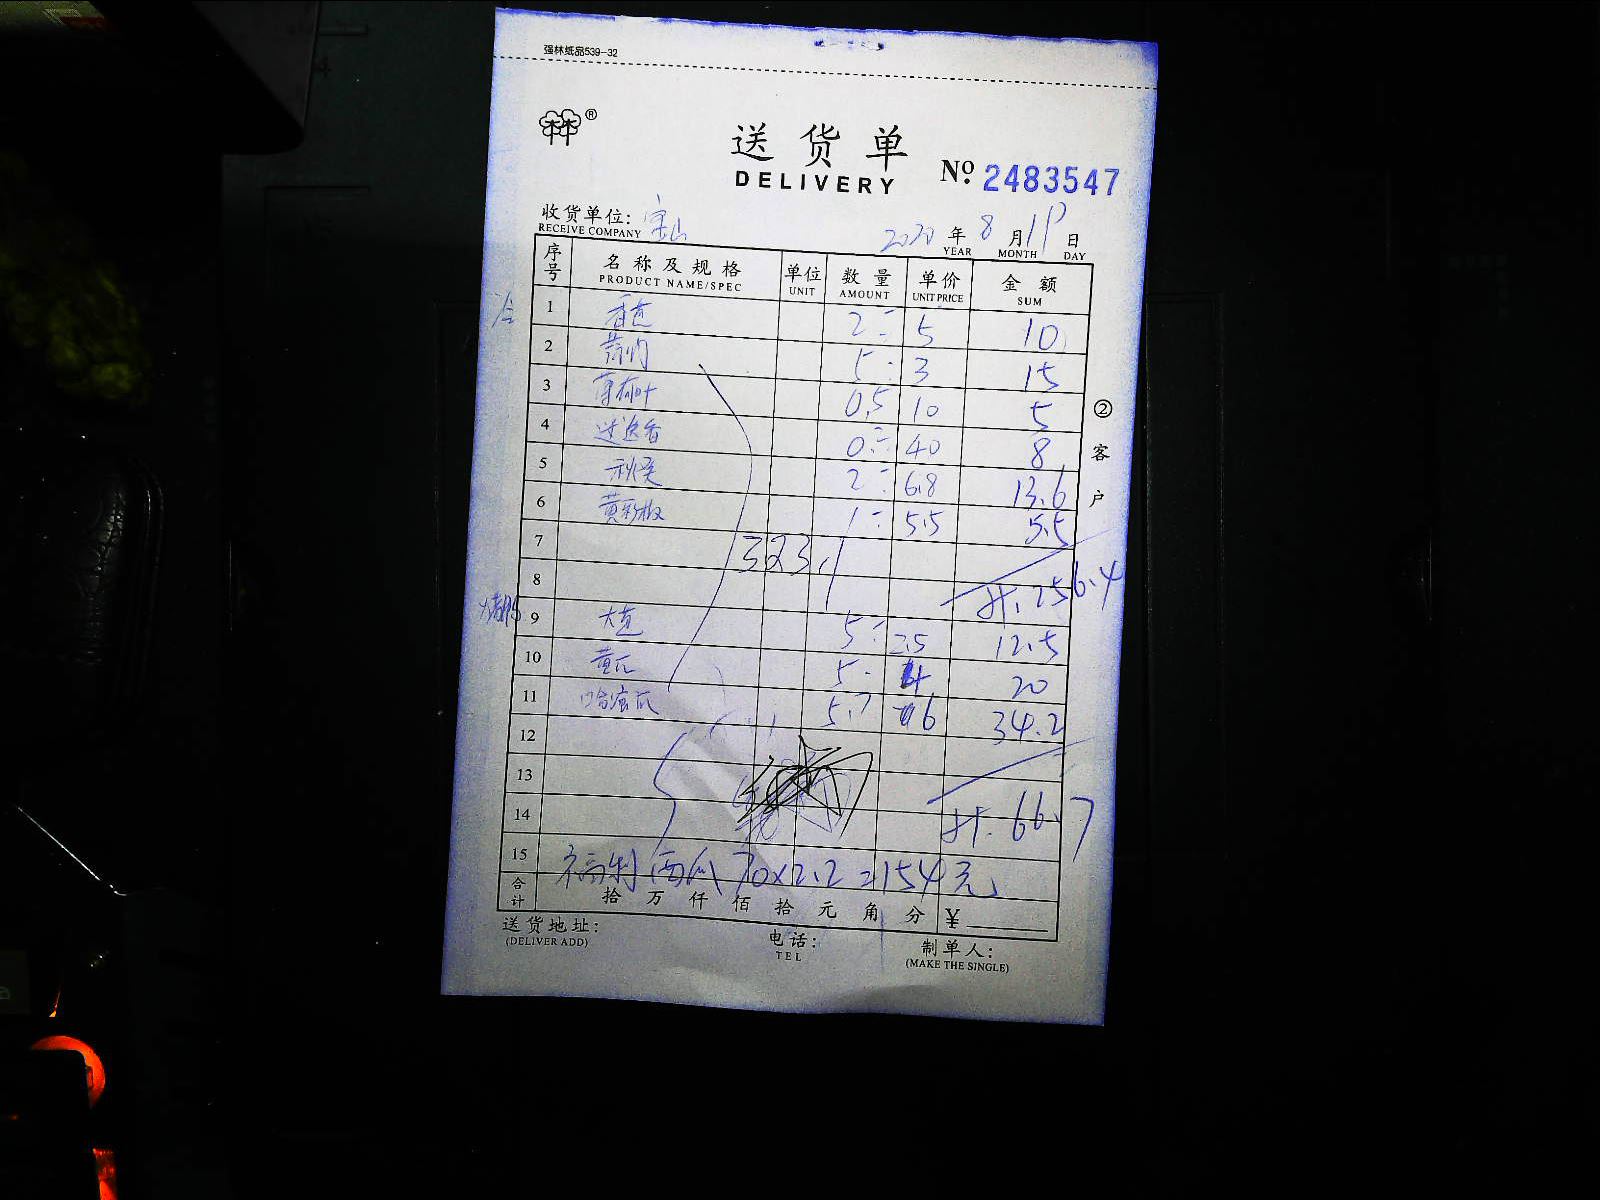 强林纸品539-32
送货单
DELIVERY
№ 2483547
收货单位: 宝山
RECEIVE COMPANY
2020 年 8 月 19 日
YEAR MONTH DAY
序号 名称及规格 单位 数量 单价 金额
PRODUCT NAME/SPEC UNIT AMOUNT UNIT PRICE SUM
冷
1 2 5 10
2 5 3 15
3 薄荷叶 0.5 10 5
4 迷迭香 40 8
5 秋葵 2 6.8 13.6
6 黄彩椒 1 5.5 5.5
7 323.1
8 计. 256.4
9 5 2.5 12.5
10 黄瓜 5 4 20
11 哈蜜瓜 5.7 6 34.2
12
13
14 计. 66.7
15 西瓜 70×2.2=154元
合计 拾 万 仟 佰 拾 元 角 分 ¥
② 客户
送货地址:
(DELIVER ADD)
电话:
TEL
制单人:
(MAKE THE SINGLE)